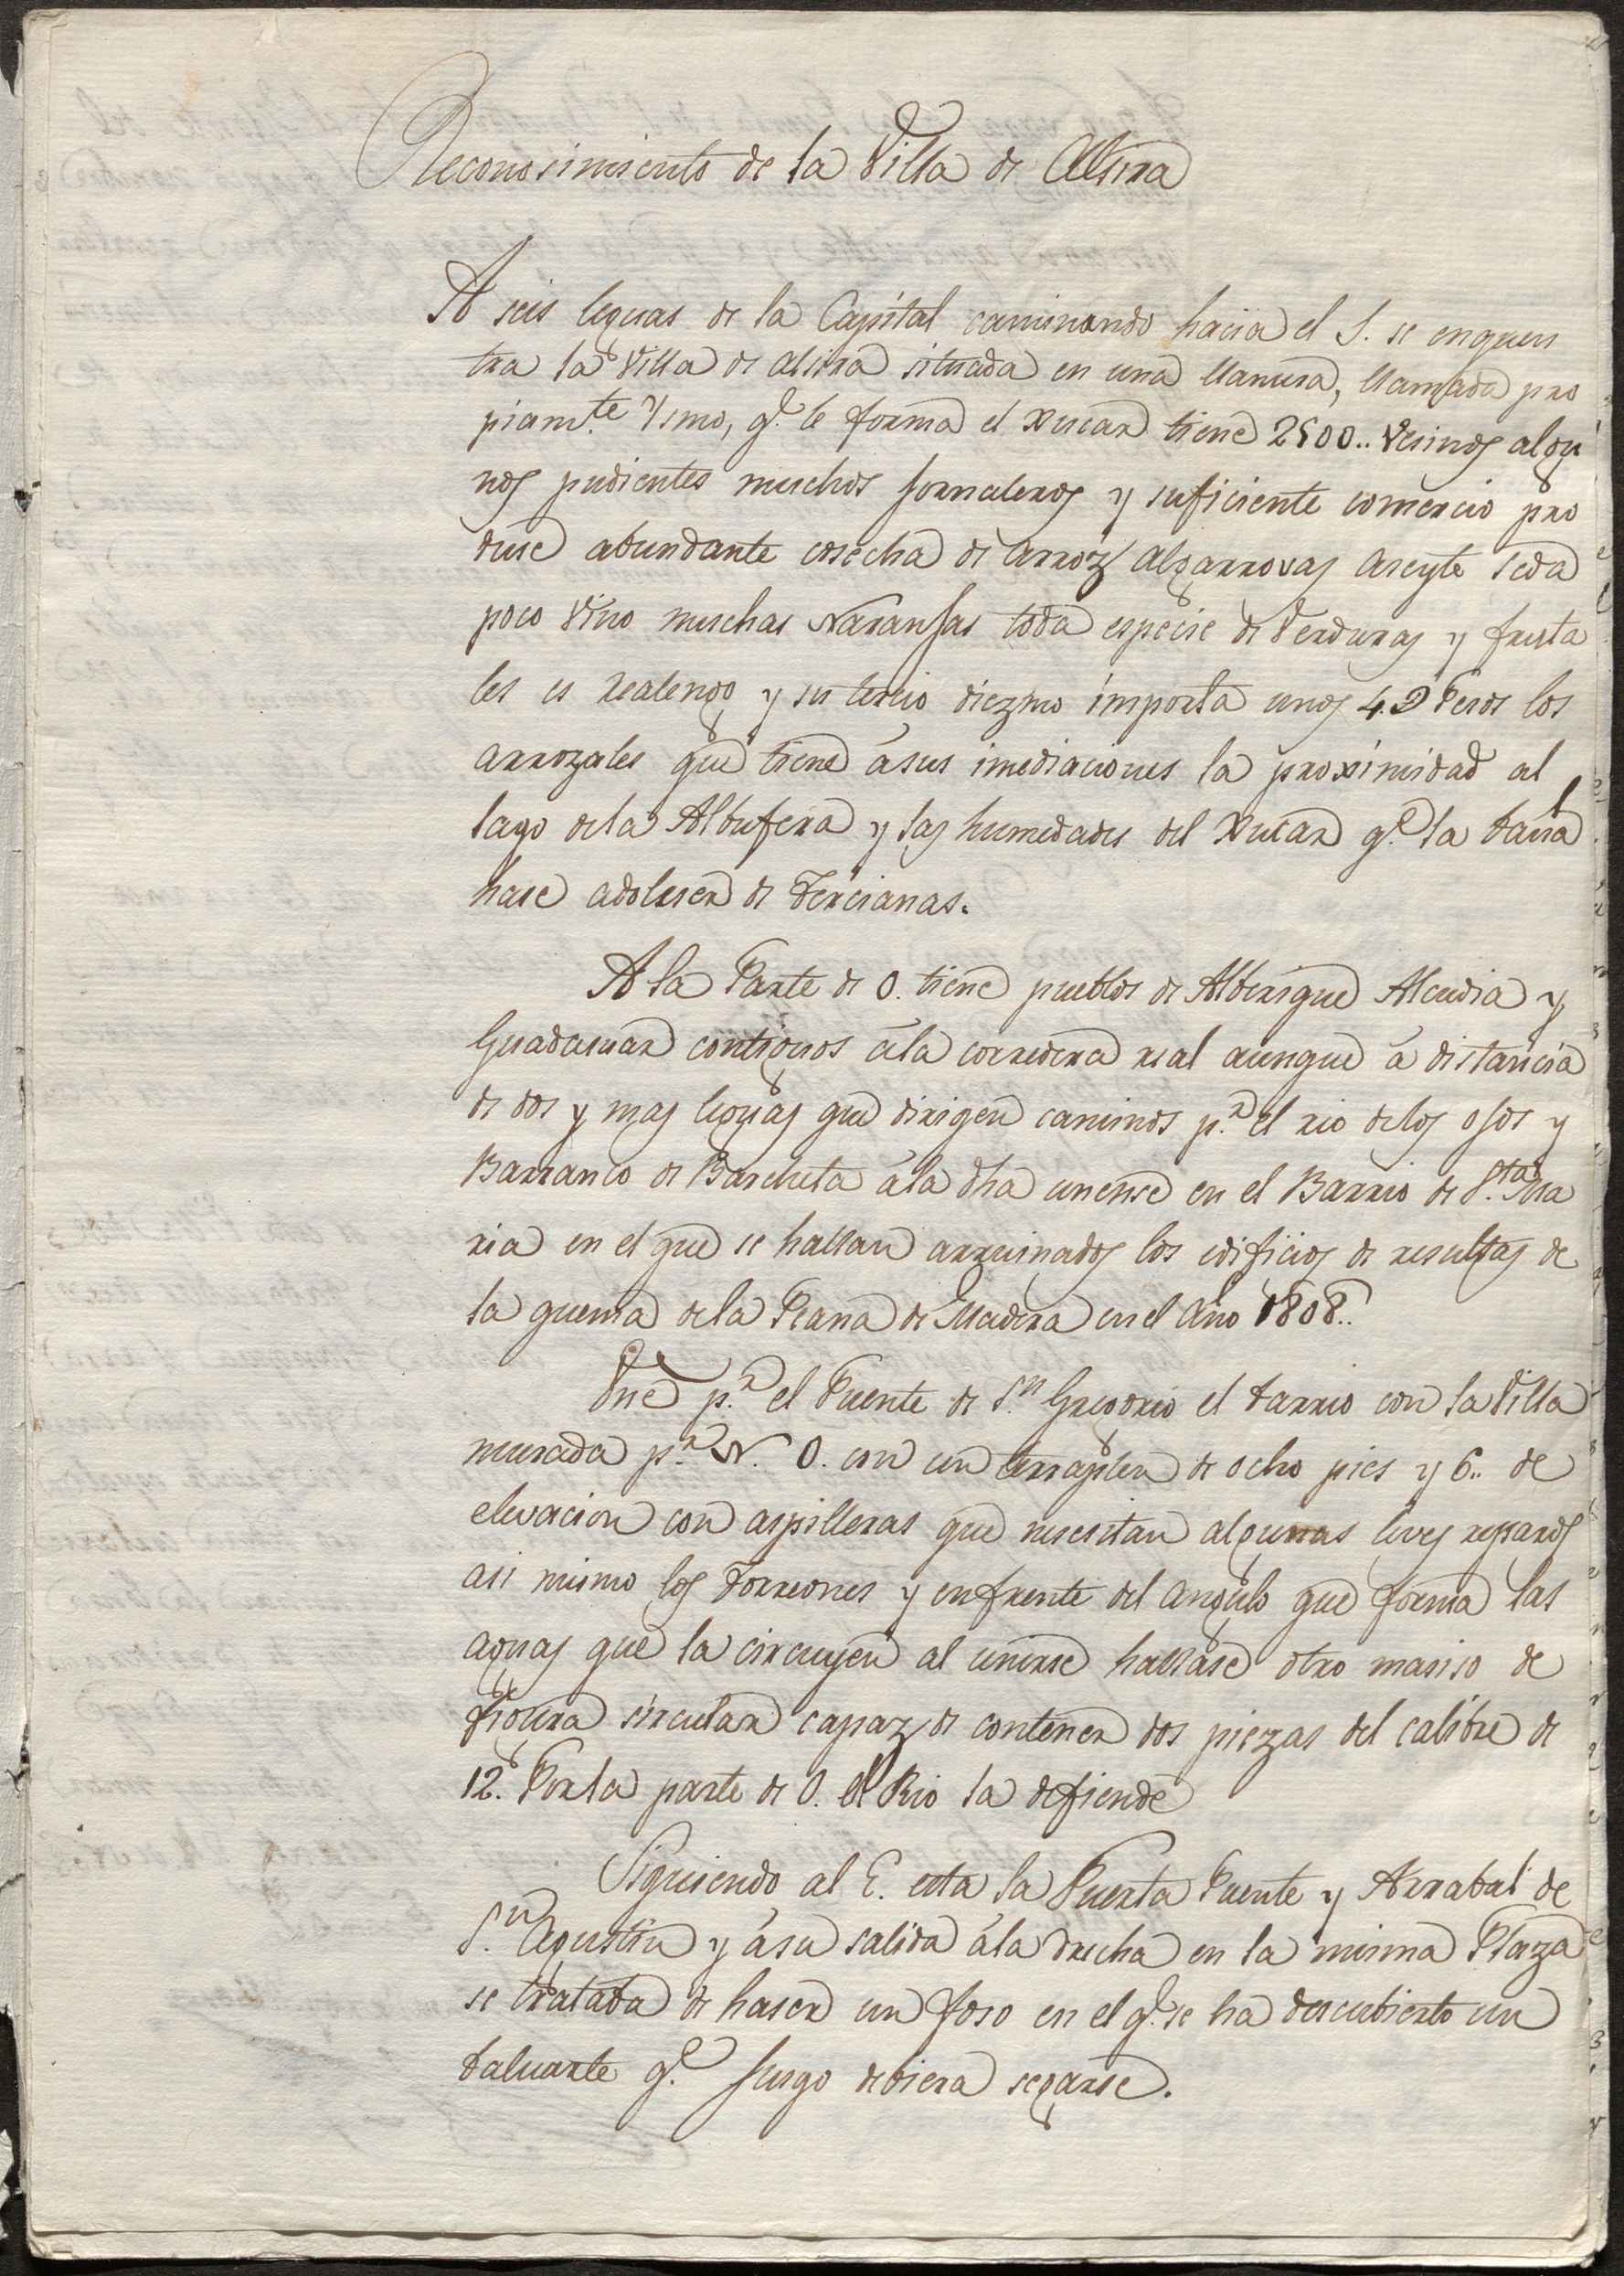 Reconosimiento de la Villa de Alsira
A seis leguas de la Capital caminando hacia el S. se enquen
tra la Villa de Alsira situada en una llanura, llamada pro
piam.te Ysmo, q.e le forma el Xucar tiene 2500.. Vesinos algu
nos pudientes muchos Jornaleros y suficiente comercio pro
duse abundante cosecha de Arroz Algarrovas Aseyte Seda
poco Vino muchas Naranjas toda espesie de Verduras y fruta
les es Realengo y su tersio diezmo importa unos 4.D Pesos los
arrozales que tiene á sus imediaciones la proximidad al
lago dela Albufera y las humedades del Xucar q.e la baña
hase adoleser de Tersianas.
A la Parte de O. tiene pueblos de Alberique Alcudia y
Guadasuar contiguos á la corredera real aunque á distancia
de dos y mas leguas que dirigen caminos p.r el rio delos Ojos y
Barranco de Barcheta á la dha unense en el Barrio de S.ta Ma
ria en el que se hallan arruinados los edificios de resultas de
la quema dela Peana de Madera en el Año 1808..
Une p.r el Puente de S.n Gregorio el barrio con la Villa
murada p.r N. O. con un terraplen de ocho pies y 6.. de
elevacion con aspilleras que nesesitan algunas leves reparos
asi mismo los Torreones y enfrente del angulo que forma las
aguas que la circuyen al unirse hallase otro masiso de
figura sircular capaz de contener dos piezas del calibre de
12. Por la parte de O. el Rio la defiende
Siguiendo al E. esta la Puerta Puente y Arrabal de
S.n Agustin y á su salida á la drecha en la misma Plaza
se trataba de haser un foso en el q.e se ha descubierto un
baluarte q.e Jusgo debiera segarse.